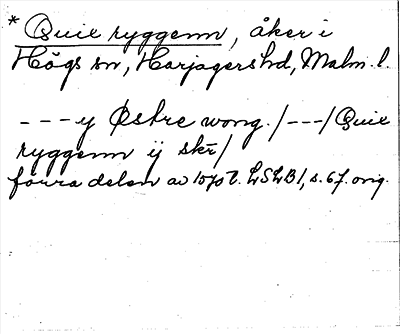 * Quie ryggenn, åker i
Högs sn, Harjagers hd, Malm. l.
- - - y Østre wong. /- - -/ Quie
ryggenn ij skr/
förra delen av 1570 t. LSLB1, s. 67. orig.